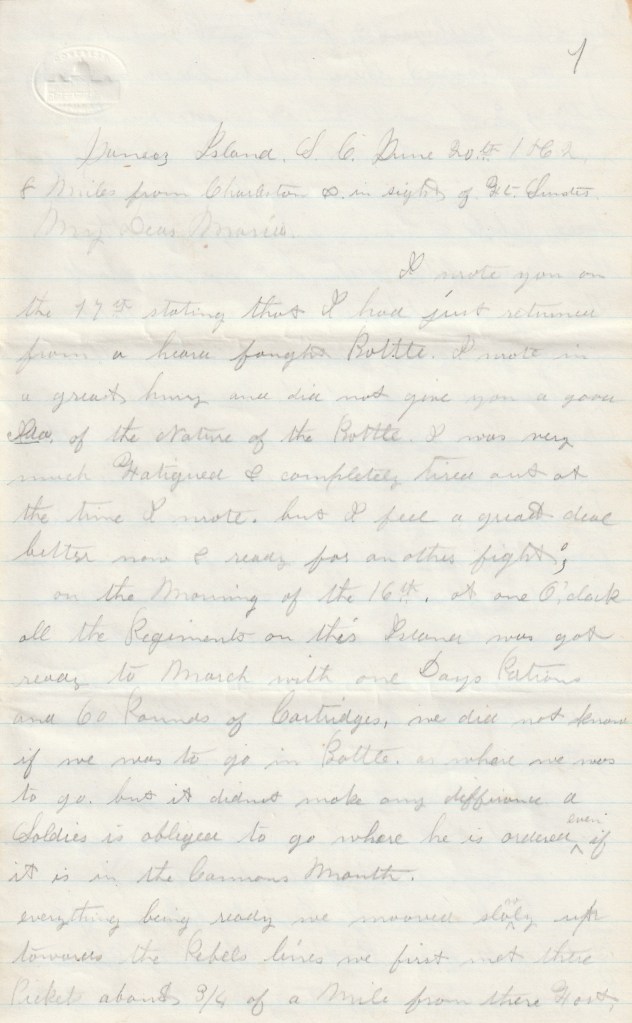 1
Jameos Island. S. C. June 20th 1862
8 Miles from Charleston & in sight of Ft. Sumter
My Dear Maria.
I wrote you on
the 17th stating that I had just returned
from a heard fought Battle. I wrote in
a great hurry and did not give you a good
Idea, of the Nature of the Battle. I was very
much Fatigued & completely tired out at
the time I wrote. but I feel a great deal
better now & ready for another fight;
on the Morning of the 16th. at one O'clock
all the Regiments on this Island was got
ready to March with one Days Rations
and 60 Rounds of Cartridges, we did not know
if we was to go in Battle. or where we was
to go. but it didnot make any defferance a
Soldier is obliged to go where he is ordered even if
it is in the Cannons Mouth.
everything being ready we mooved slooly up
towards the Rebels lines we first met there
Picket about 3/4 of a Mile from there Fort,